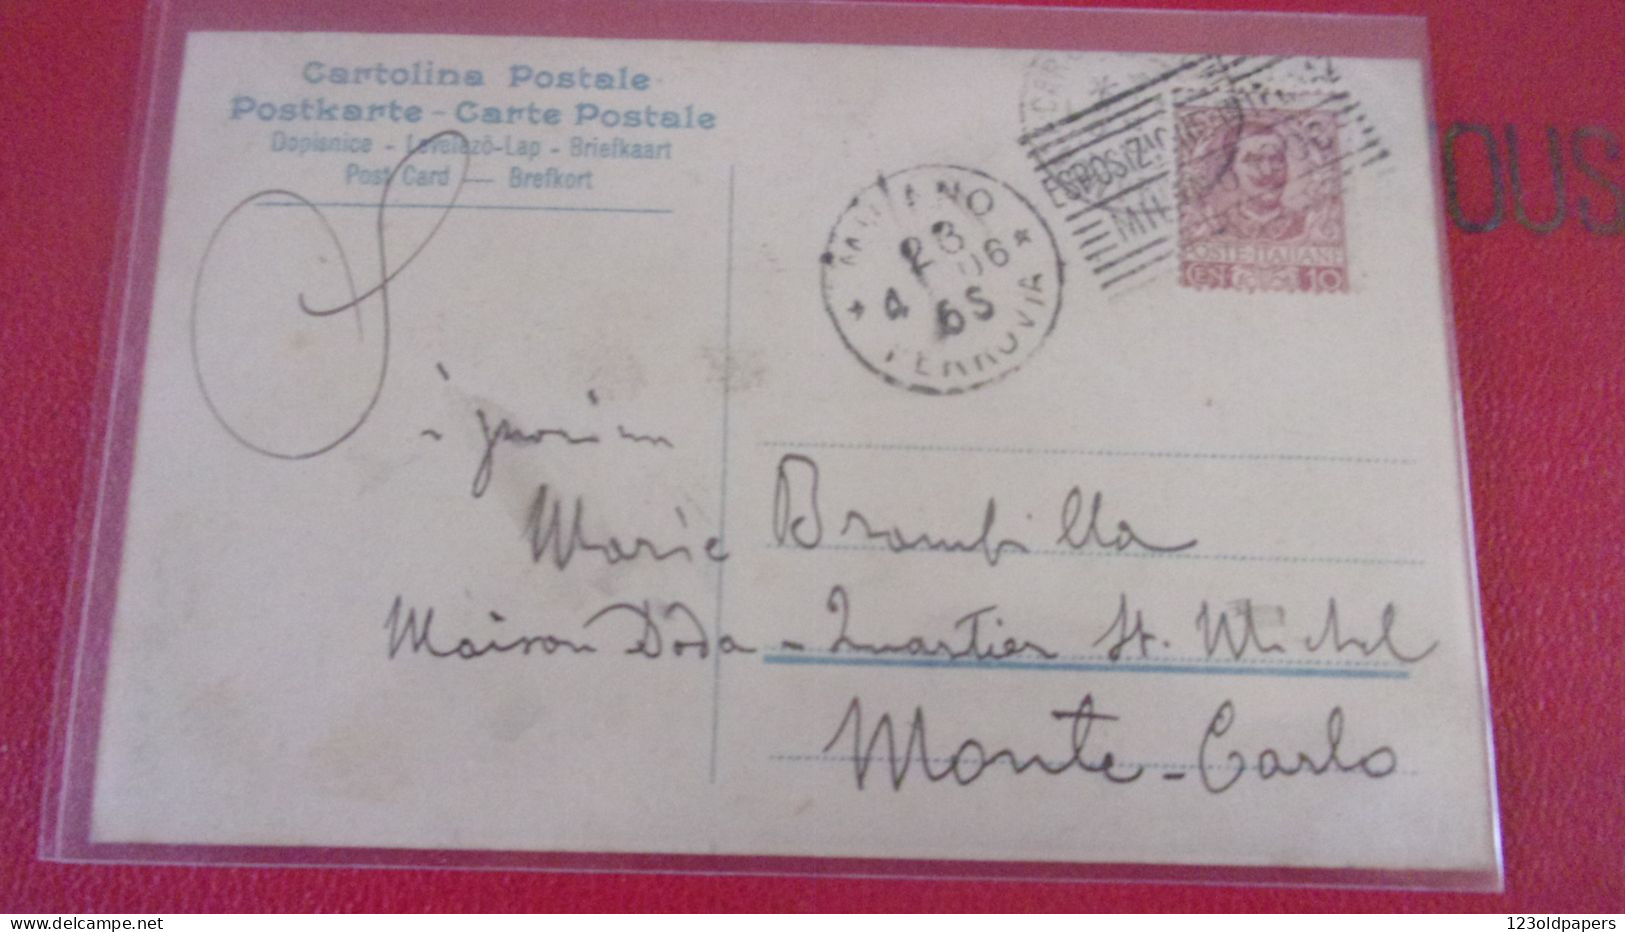 Cartolina Postale
Postkarte - Carte Postale
Dopisnice - Levelezö-Lap - Briefkaart
Post Card — Brefkort
MILANO
23
06
4 6S
FERROVIA
ESPOSIZIONE
POSTE ITALIANE
CENT. 10
Marie Brambilla
Maison Doda - Quartier St. Michel
Monte-Carlo
OUS
123oldpapers